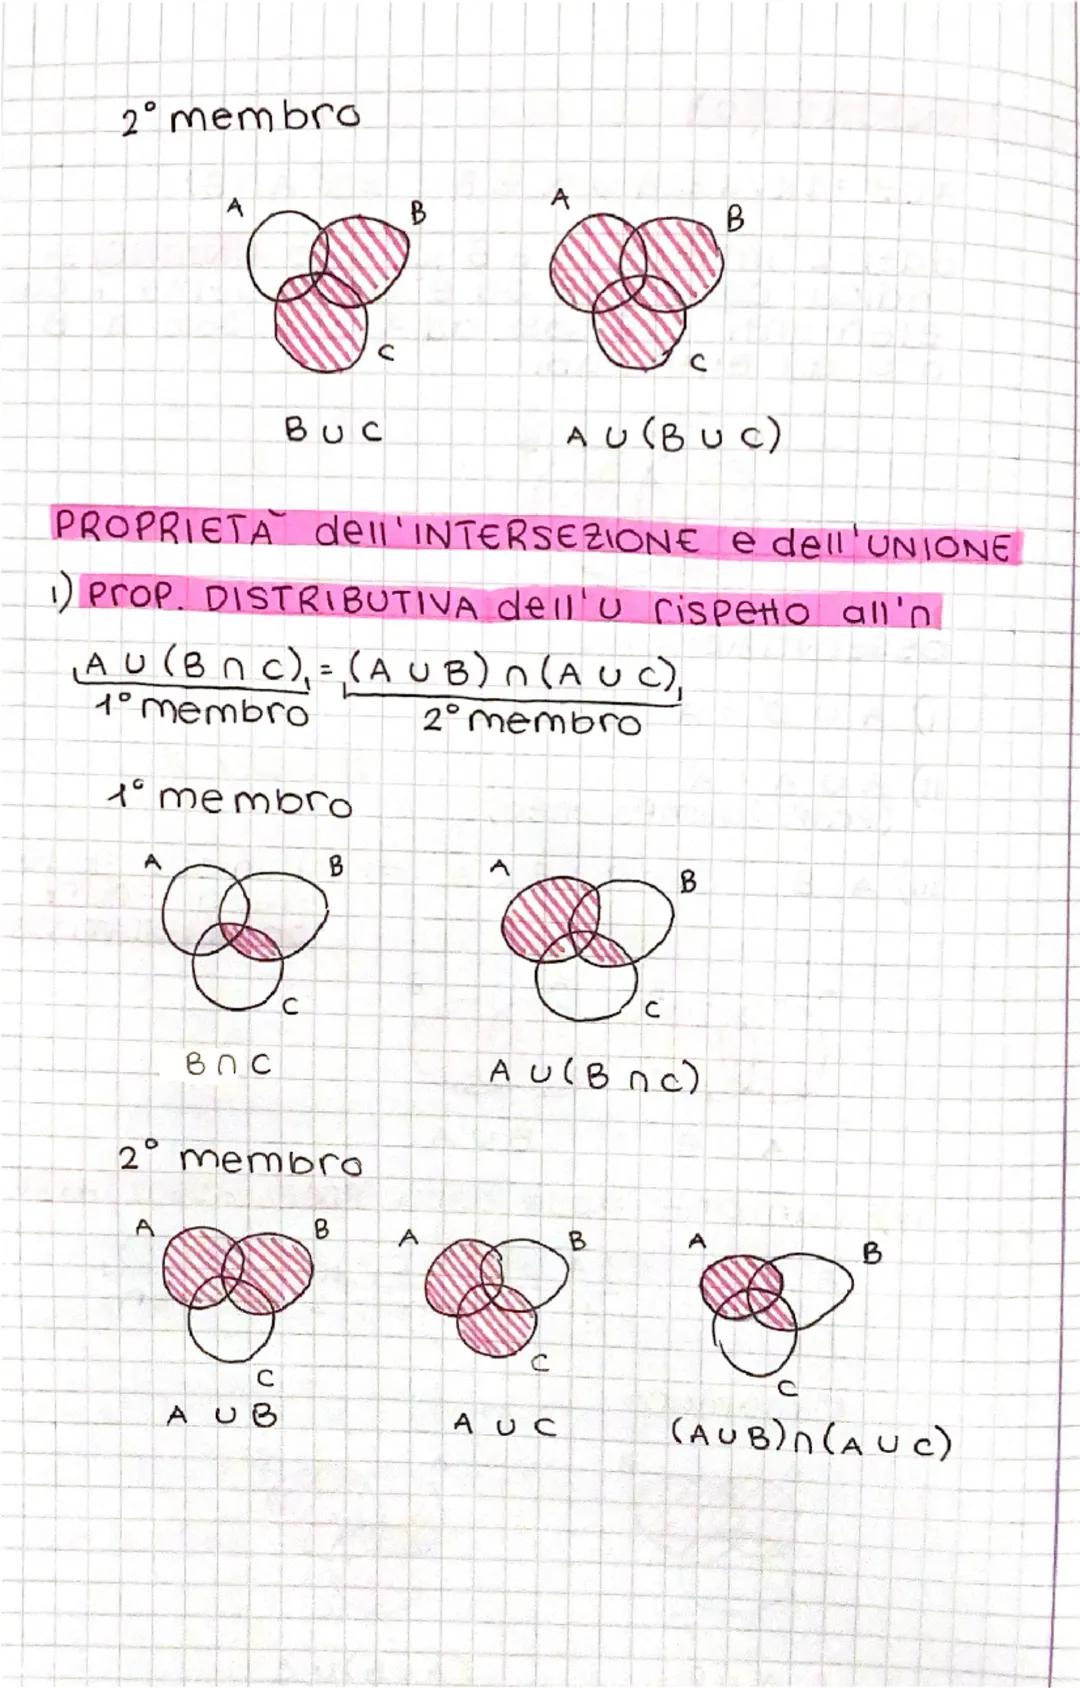 2° membro
A B A B
C C
B ∪ C A ∪ (B ∪ C)
PROPRIETÀ dell'INTERSEZIONE e dell'UNIONE
1) PrOP. DISTRIBUTIVA dell'∪ rispetto all'∩
A ∪ (B ∩ C) = (A ∪ B) ∩ (A ∪ C)
1° membro 2° membro
1° membro
A B A B
C C
B ∩ C A ∪ (B ∩ C)
2° membro
A B A B A B
C C C
A ∪ B A ∪ C (A ∪ B) ∩ (A ∪ C)